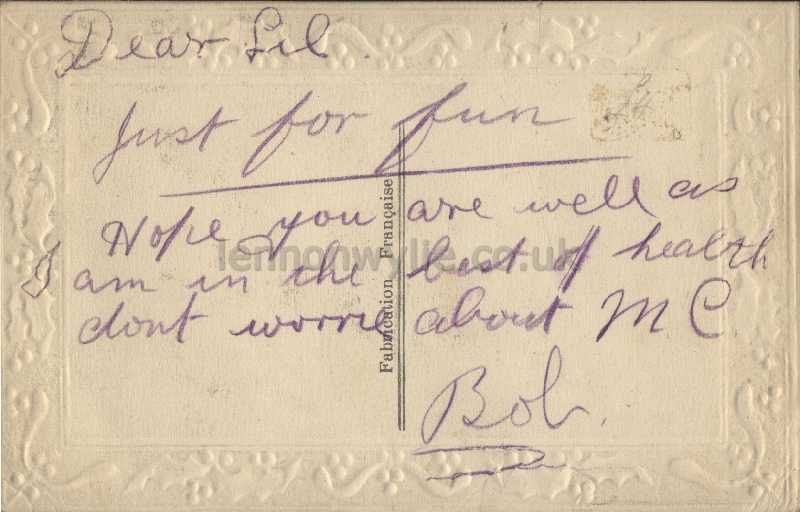 Dear Lil.
Just for fun
Hope you are well as
I am in the best of health
dont worrie about M C
Bob.
Fabrication Française
lennonwylie.co.uk